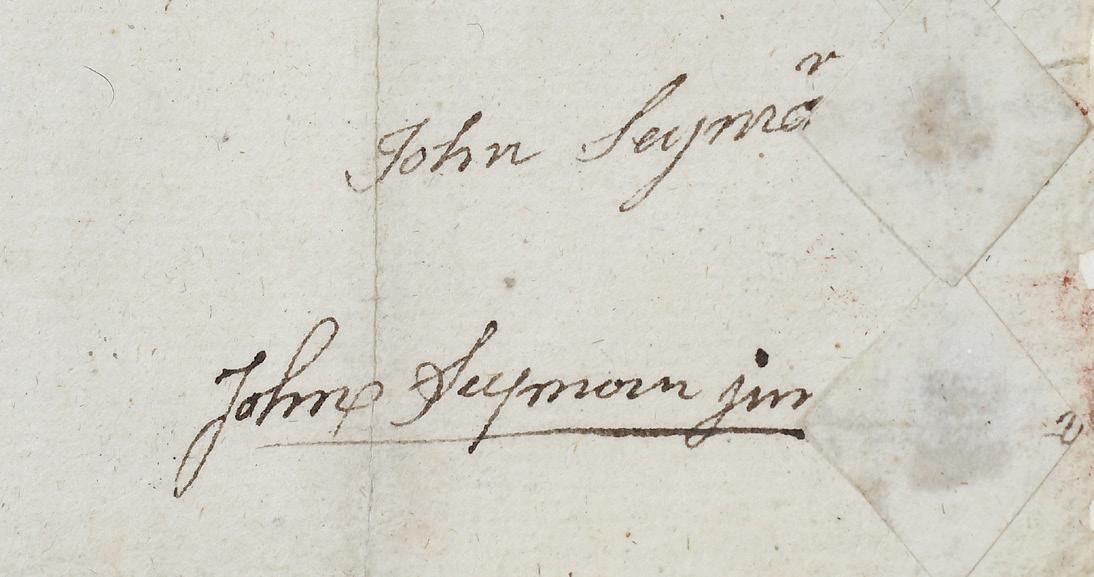 John Seymor
John Seymour jun